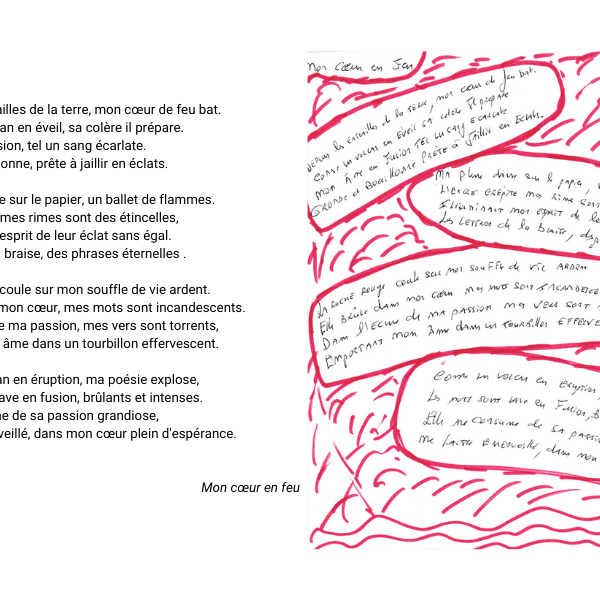 ailles de la terre, mon cœur de feu bat.
an en éveil, sa colère il prépare.
sion, tel un sang écarlate.
onne, prête à jaillir en éclats.
e sur le papier, un ballet de flammes.
mes rimes sont des étincelles,
esprit de leur éclat sans égal.
braise, des phrases éternelles .
coule sur mon souffle de vie ardent.
mon cœur, mes mots sont incandescents.
e ma passion, mes vers sont torrents,
âme dans un tourbillon effervescent.
an en éruption, ma poésie explose,
ave en fusion, brûlants et intenses.
ne de sa passion grandiose,
veillé, dans mon cœur plein d'espérance.
Mon cœur en feu
Mon Cœur en Feu
Depuis les entrailles de la terre, mon cœur de feu bat.
Comme un volcan en éveil sa colère il prépare
Mon âme en fusion tel un sang écarlate
Gronde et bouillonne prête à jaillir en éclats.
Ma plume danse sur le papier,
L'encre crépite mes rimes
Illuminant mon esprit de
Les lettres de la braise,
La roche rouge coule sur mon souffle de vie ardent
Elle brûle dans mon cœur mes mots sont incandesce
Dans l'écume de ma passion mes vers sont
Emportant mon âme dans un tourbillon efferve
Comme un volcan en éruption
Les mots sont lave en fusion, b
Elle me consume de sa passi
Me laisse émerveillé, dans mon